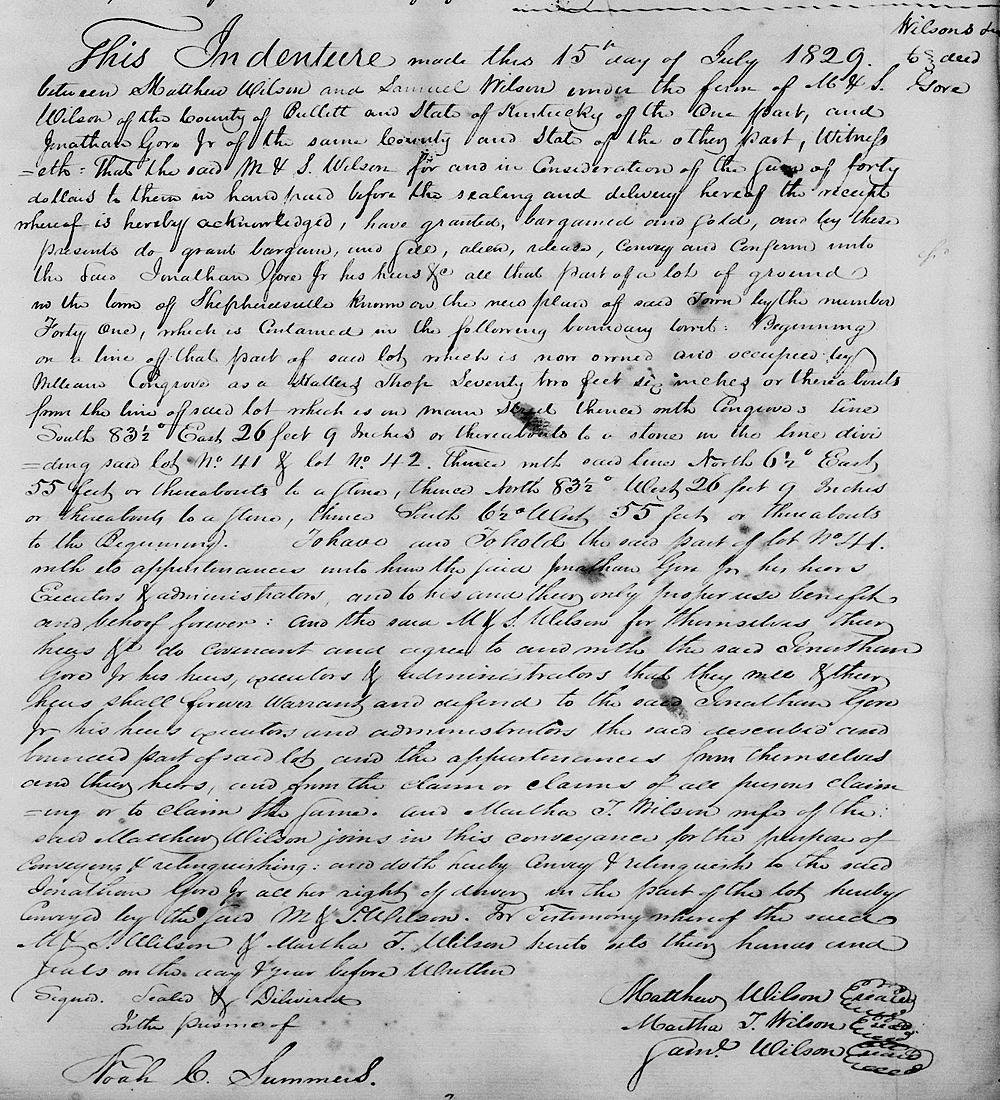 Wilsons
to } deed
Gore
This Indenture made this 15th day of July 1829.
between Matthew Wilson and Samuel Wilson under the firm of M & S.
Wilson of the County of Bullitt and State of Kentucky of the One part, and
Jonathan Gore Jr of the same County and State of the other part, Witness
=eth: That the said M & S. Wilson for and in Consideration of the Sum of forty
dollars to them in hand paid before the sealing and delivery hereof the receipt
whereof is hereby acknowledged, have granted, bargained and sold, and by these
presents do grant bargain, and sell, alien, release, Convey and Confirm unto
the said Jonathan Gore Jr his heirs &c all that part of a lot of ground
in the town of Shepherdsville Known on the new plan of said Town by the number
Forty One, which is Contained in the following boundary towit: Beginning
on a line of that part of said lot which is now owned and occupied by
William Congrove as a Hatters Shop Seventy two feet six inches or thereabouts
from the line of said lot which is on main Street thence with Congroves line
South 83½° East 26 feet 9 Inches or thereabouts to a stone in the line divi
=ding said lot No. 41 & lot No. 42. thence with said line North 6½° East
55 feet or thereabouts to a stone, thence North 83½° West 26 feet 9 Inches
or thereabouts to a stone, thence South 6½° West 55 feet or thereabouts
to the Beginning. To have and To hold the said part of lot No 41.
with its appurtenances unto him the said Jonathan Gore Jr his heirs
Executors & administrators, and to his and their only proper use benefit
and behoof forever: and the said M & S. Wilson for themselves their
heirs &c do covenant and agree to and with the said Jonathan
Gore Jr his heirs, executors & administrators that they will & their
heirs shall forever Warrant and defend to the said Jonathan Gore
Jr his heirs executors and administrators the said described and
bounded part of said lot and the appurtenances from themselves
and their heirs, and from the claim or claims of all persons claim
=ing or to claim the same. and Martha T. Wilson wife of the
said Matthew Wilson joins in this conveyance for the purpose of
conveying & relinquishing: and doth hereby Convey & relinquish to the said
Jonathan Gore Jr all her right of dower in the part of the lot hereby
Conveyed by the said M & S Wilson. In Testimony whereof the said
M & S. Wilson & Martha T. Wilson hereto sets their hands and
seals on the day & year before Written
Signed. Sealed & Delivered
In the presence of
Matthew Wilson Seal
Martha T. Wilson Seal
Saml. Wilson Seal
Noah C. Summers.